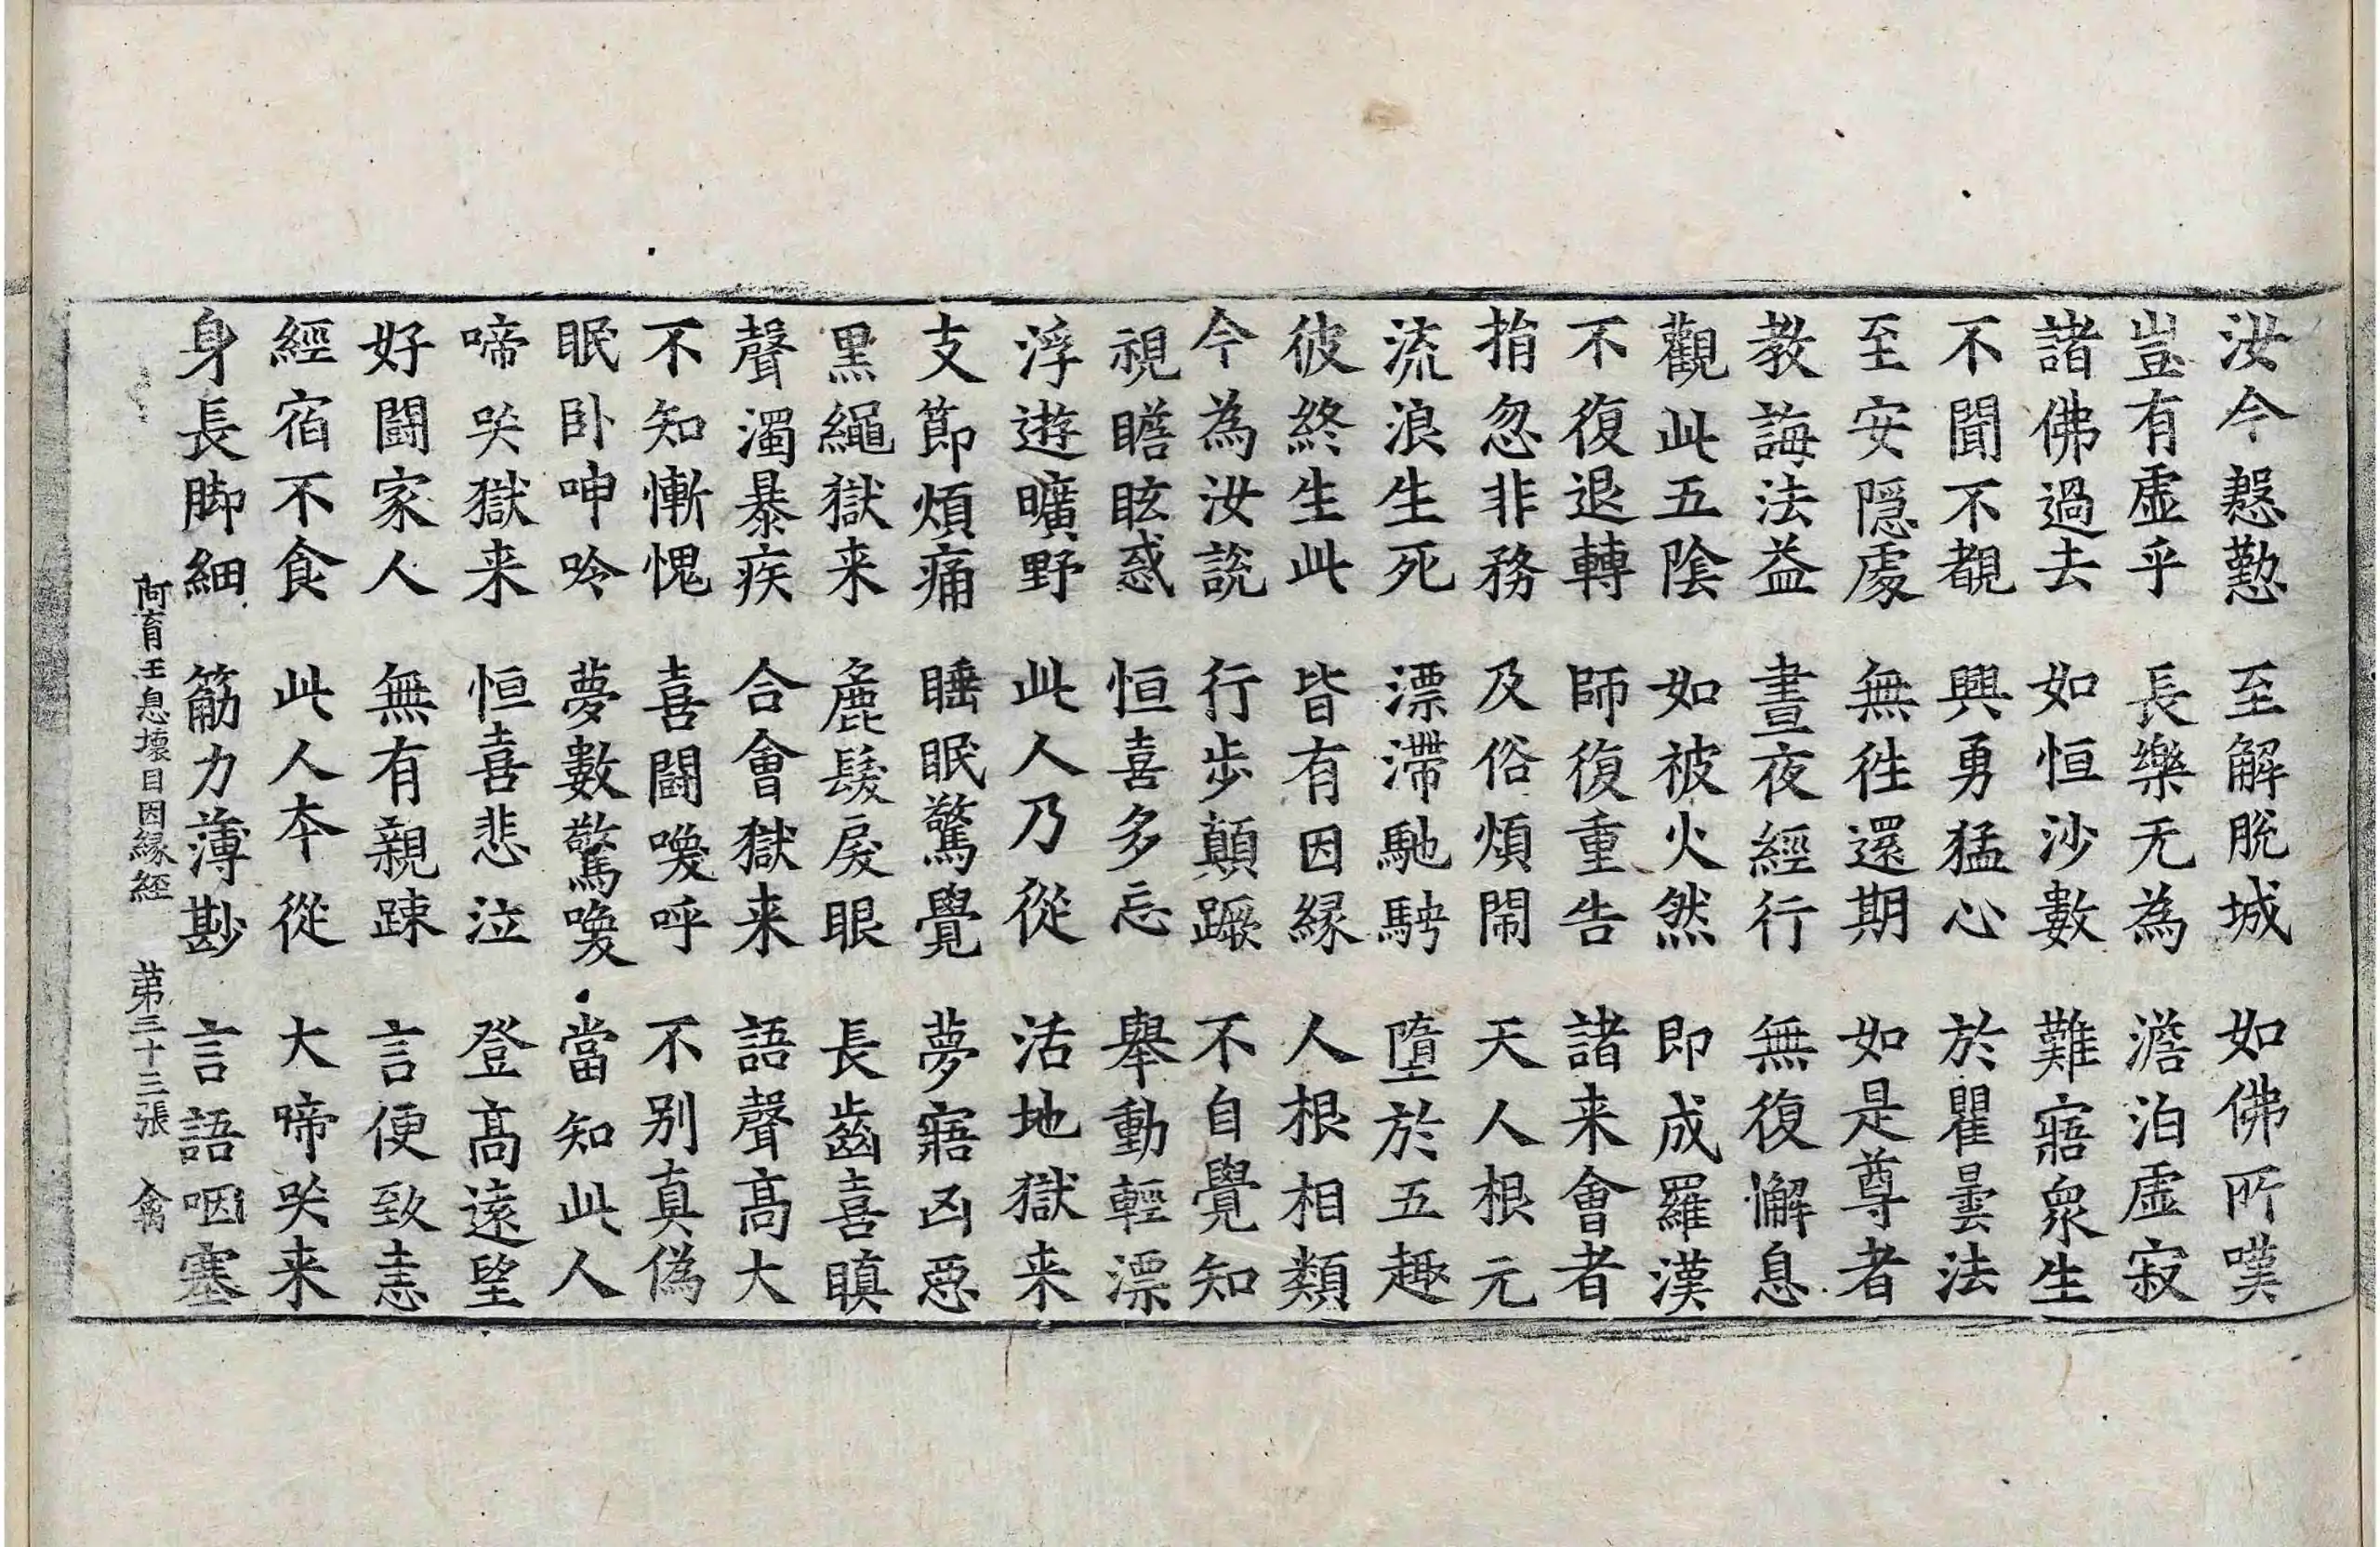 汝今慇懃 至解脫城 如佛所嘆
豈有虛乎 長樂无為 澹泊虛寂
諸佛過去 如恒沙數 難寤衆生
不聞不覩 興勇猛心 於瞿曇法
至安隱處 無徃還期 如是尊者
教誨法益 晝夜經行 無復懈息
觀此五陰 如被火然 即成羅漢
不復退轉 師復重告 諸来會者
捐忽非務 及俗煩閙 天人根元
流浪生死 漂滯馳騁 墮於五趣
彼終生此 皆有因緣 人根相類
今為汝說 行步顛蹶 不自覺知
視瞻眩惑 恒喜多忘 舉動輕漂
浮遊曠野 此人乃從 活地獄来
支節煩痛 睡眠驚覺 夢寤凶惡
黑繩獄来 麁髮戾眼 長齒喜瞋
聲濁暴疾 合會獄来 語聲高大
不知慚愧 喜鬪喚呼 不別真偽
眠卧呻吟 夢數驚喚 當知此人
啼哭獄来 恒喜悲泣 登高遠望
好鬪家人 無有親踈 言便致恚
經宿不食 此人本從 大啼哭来
身長脚細 筋力薄尠 言語咽塞
阿育王息壞目因緣經 第三十三張 禽